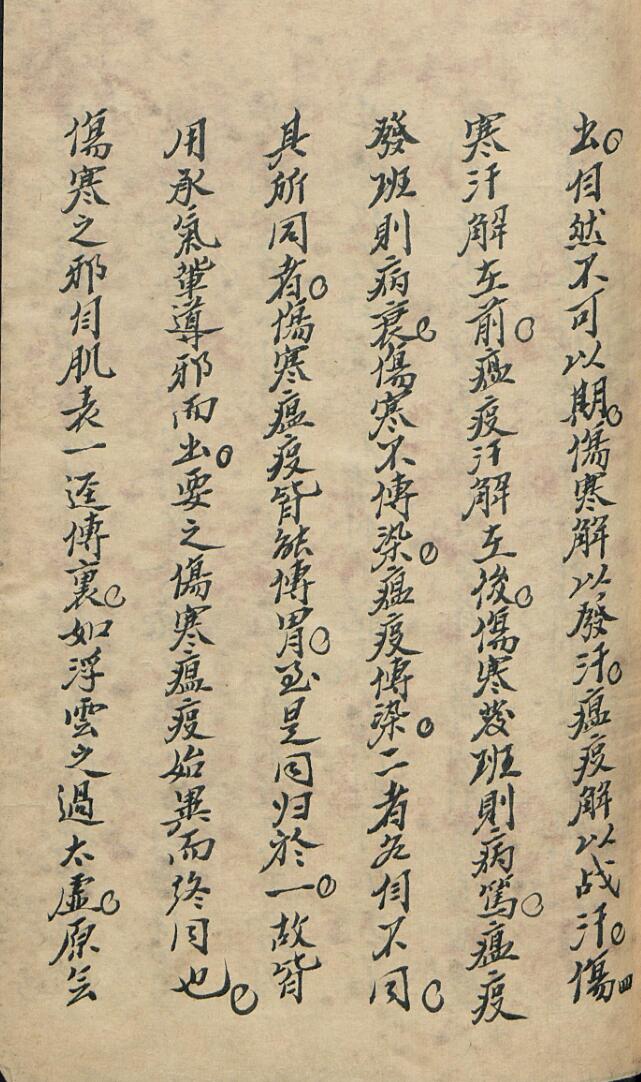 出。自然不可以期。傷寒解以發汗。瘟疫解以战汗。傷
寒汗解在前。瘟疫汗解在後。傷寒發班則病篤。瘟疫
發班則病衰。傷寒不傳染。瘟疫傳染。二者各自不同。
其所同者。傷寒瘟疫皆能傳胃。至是同归於一。故皆
用承氣軰導邪而出。要之傷寒瘟疫始異而终同也。
傷寒之邪自肌表一迳傳裏。如浮雲之過太虚。原无
四